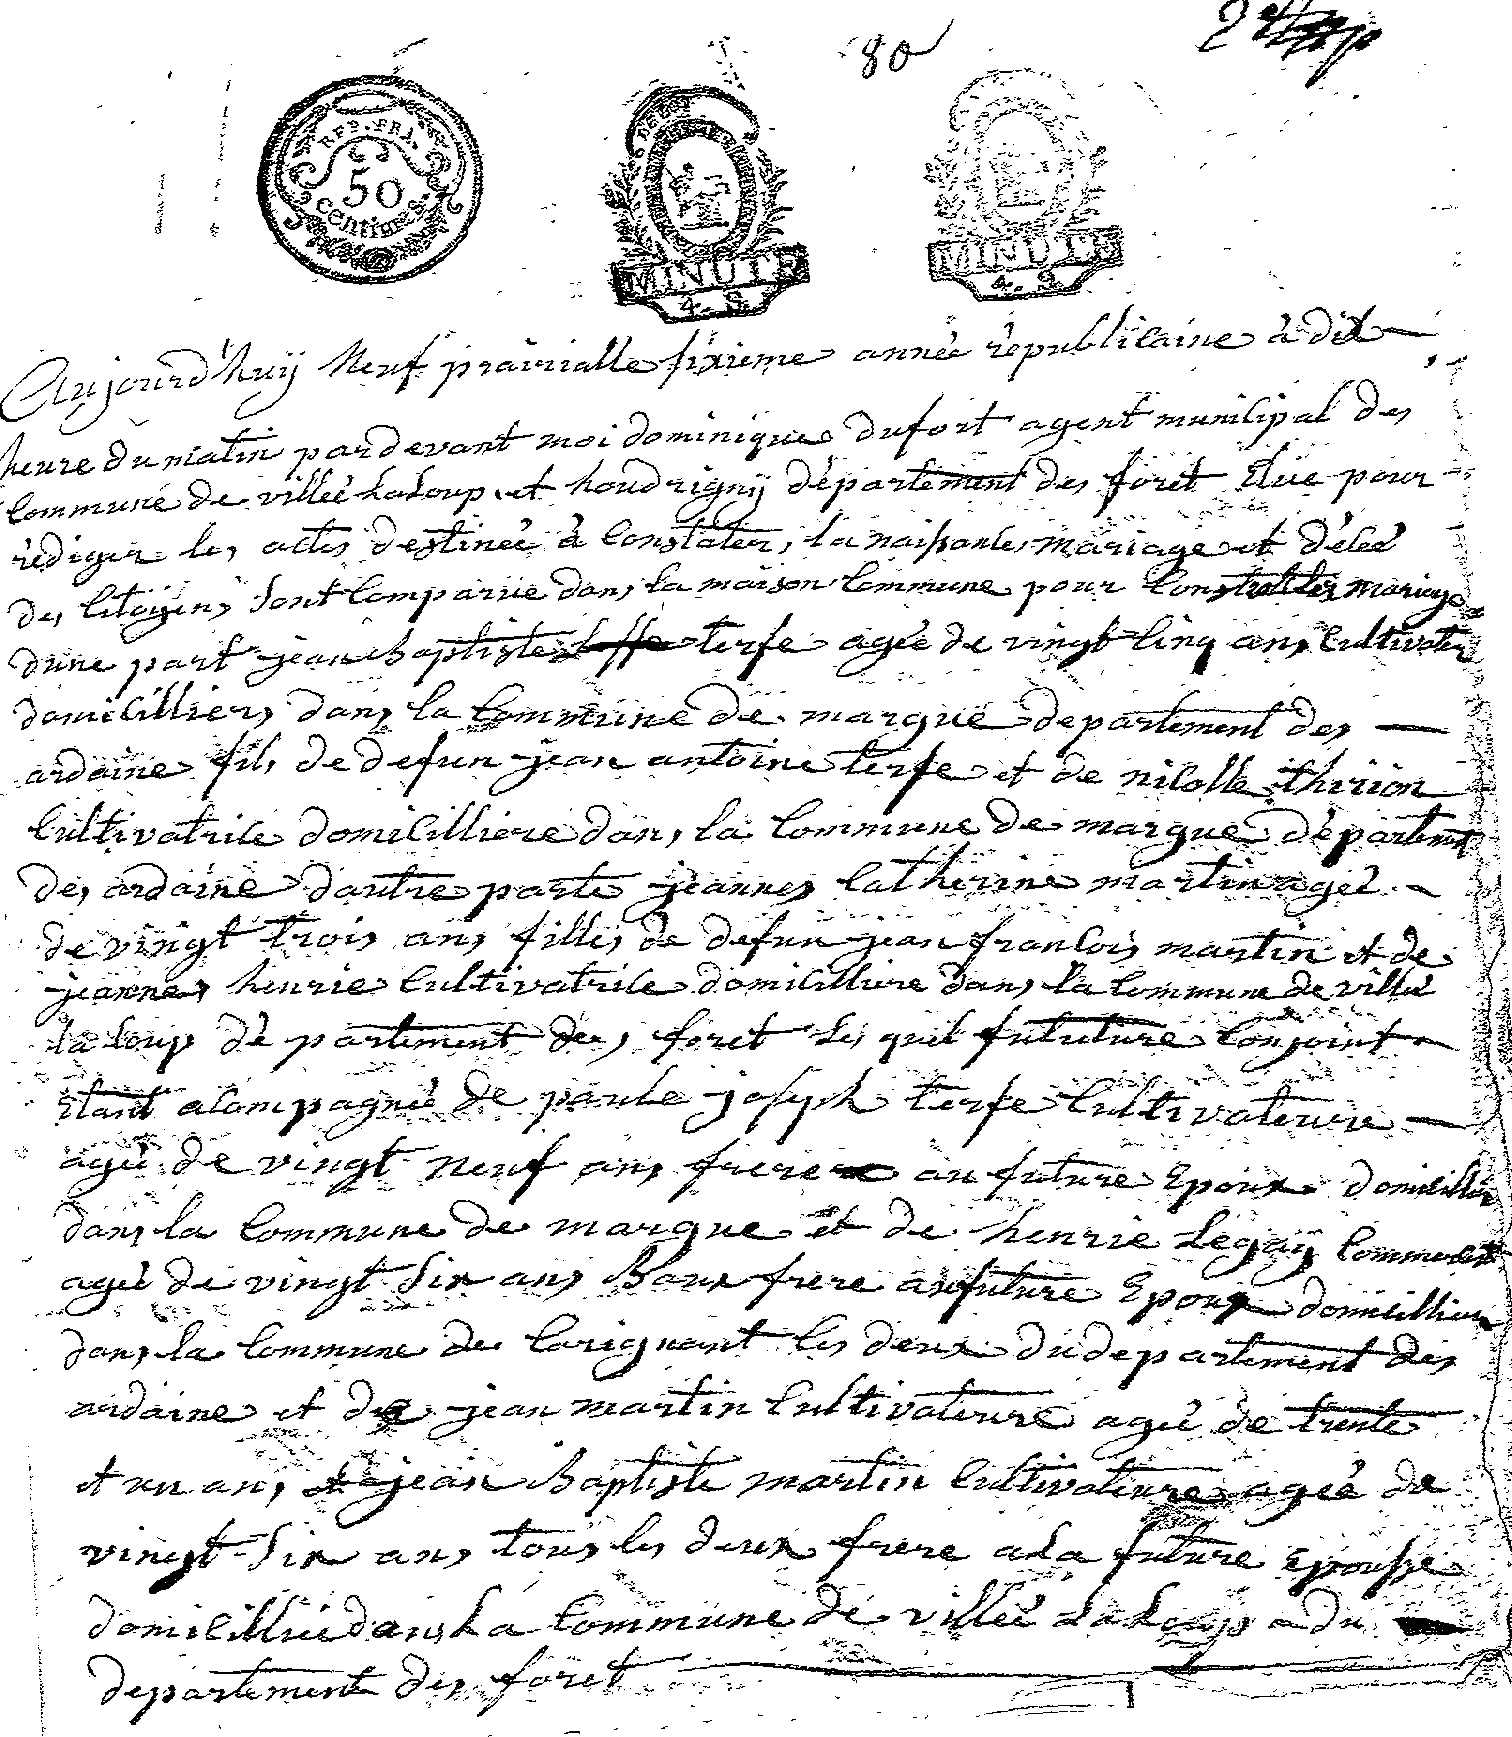 80
REP. FRA.
50
centimes
MINUTE
4. S.
MINUTE
4. S.
Aujourd'huÿ neuf prairialle sixieme anneè rèpublicaine à dix
heure du matin pardevant moi dominique dufort agent municipal des
commune de villeè laloup et houdrignÿ dèpartement des foret elue pour
rèdiger les actes destineè à constater, la naissances mariage et dèleè
des citoyens sont comparüe dans la maison commune pour mariage
dune part jean baptiste terfe ageè de vingt cinq ans cultivateur
domicilliers dans la commune de margue departement des
ardaine fils de defun jean antoine terfe et de nicolle thirion
cultivatrice domicilliere dans la commune de margue dèpartement
des ardaine dautre parte jeannes catherine martin ageè
de vingt trois ans filles de defun jean francois martin et de
jeannes henrie cultivatrice domicilliere dans la commune de villeè
la loup dèpartement des foret les quel fututure conjoint
etant acompagneè de paule joseph terfe cultivateure
ageè de vingt neuf ans frere au future epoux domicillier
dans la commune de margue et de henrie Legaÿ
ageè de vingt six ans Baux frere au future Epoux domicillier
dans la commune de carignant les deux du departement des
ardaine et de jean martin cultivateure ageè de trente
et un ans et jean Baptiste martin cultivateure ageè de
vingt six ans tous les deux frere a la future Epousse
domicilliè dans La commune de villeè La Loup a du
departement des foret